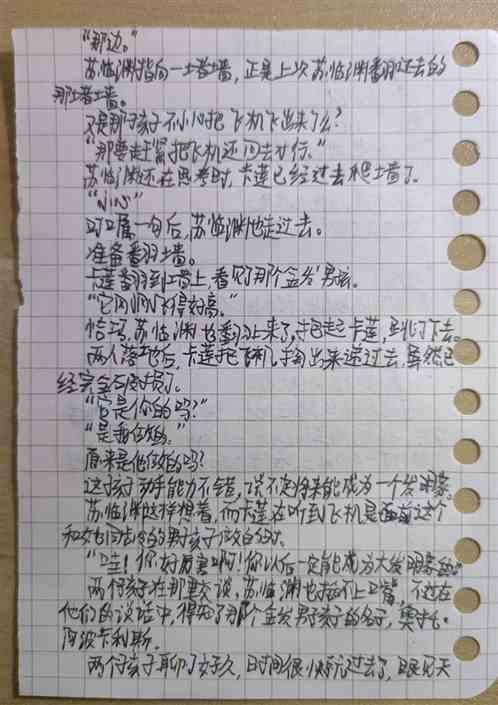 “那边。”
苏临渊指向一堵墙，正是上次苏临渊翻过去的
那堵墙。
又是那个孩子不小心把飞机飞出来了么？
“那要赶紧把飞机还回去才行。”
苏临渊还在思考时，卡莲已经过去爬墙了。
“小心”
叮嘱一句后，苏临渊也走过去。
准备翻墙。
卡莲翻到墙上，看见了那个金发男孩。
“它刚刚飞得好高。”
恰巧，苏临渊也翻上来了，抱起卡莲，跳了下去。
两人落地后，卡莲把飞机掏出来递过去，虽然已
经完全破损了。
“它是你的吗？”
“是我做的。”
原来是他做的吗？
这孩子动手能力不错，说不定将来能成为一个发明家。
苏临渊这样想着，而卡莲在听到飞机是面前这个
和她同龄的男孩子做的时，
“哇！你好厉害啊！你以后一定能成为大发明家的
两个孩子在那里交谈，苏临渊也插不上嘴，不过在
他们的谈话中，得知了那个金发男孩子的名字，奥托·
阿波卡利斯。
两个孩子聊了好久，时间很快就过去了，眼见天